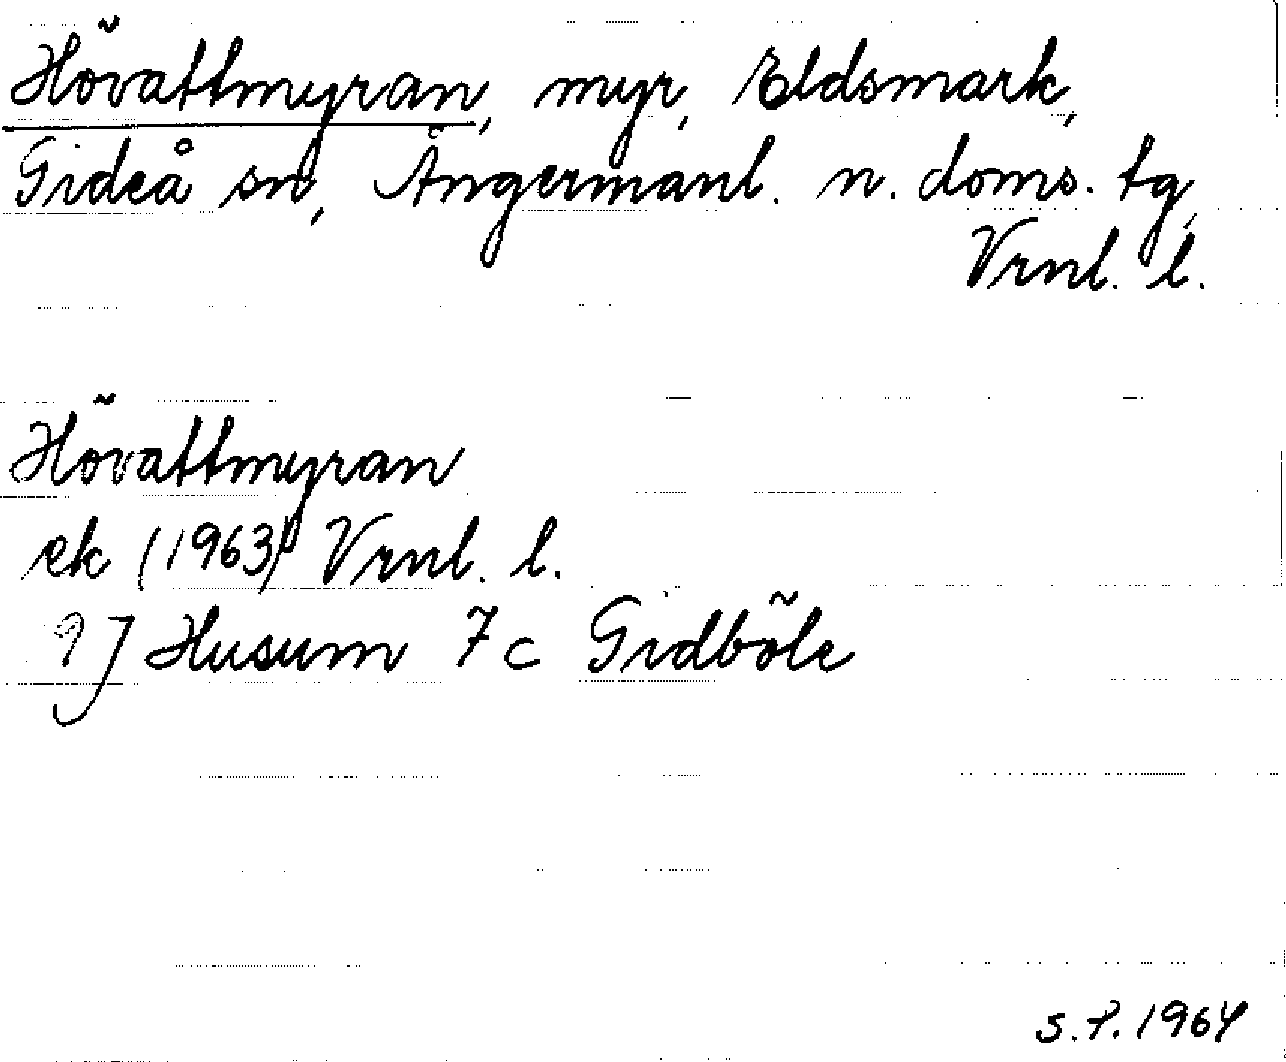 Hövattmyran, myr, Eldsmark,
Gideå sn, Ångermanl. n. doms. tg,
Vrnl. l.
Hövattmyran
ek (1963) Vrnl. l.
9J Husum 7c Gidböle
S.P. 1964